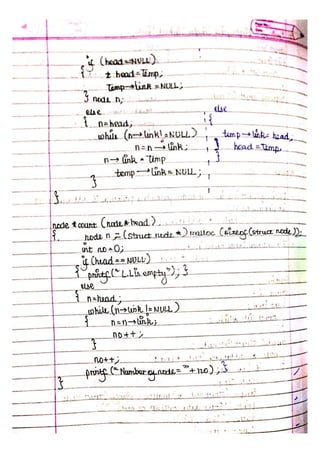 if (head==NULL)
{ head=Temp;
Temp→link =NULL;
} node n;
else
{ n=head;
while (n→link!=NULL)
n=n→link;
n→link = Temp
temp→link = NULL;
}
else
{
temp→link= head;
head =Temp;
}
}
node *count (node*head)
{ node n = (struct node *) malloc (sizeof(struct node));
int no=0;
if (head == NULL)
{ printf("L.L is empty"); }
else
{ n=head;
while (n→link != NULL)
{ n=n→link;
no++;
}
no++;
printf ("Number of node=" + no); }
}